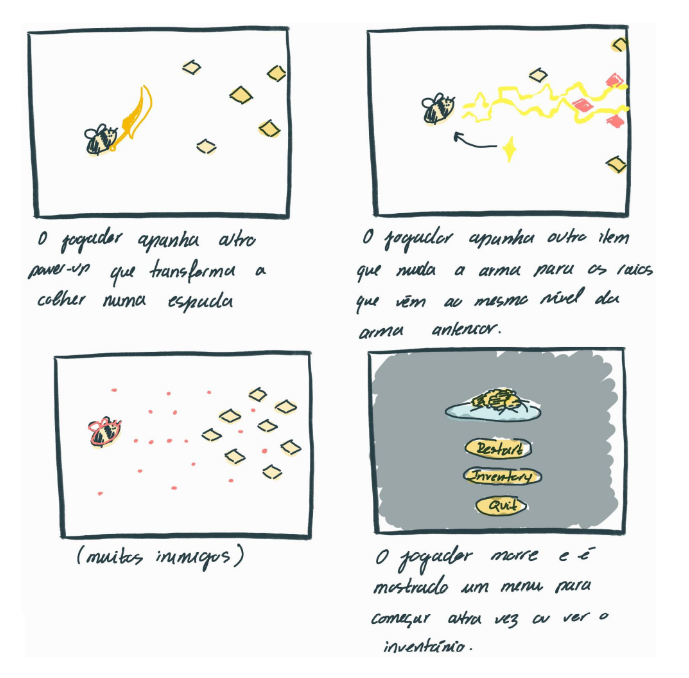 O jogador apanha outro
power-up que transforma a
colher numa espada
O jogador apanha outro item
que muda a arma para os raios
que vêm ao mesmo nível da
arma anterior.
(muitos inimigos)
Restart
Inventory
Quit
O jogador morre e é
mostrado um menu para
começar outra vez ou ver o
inventário.